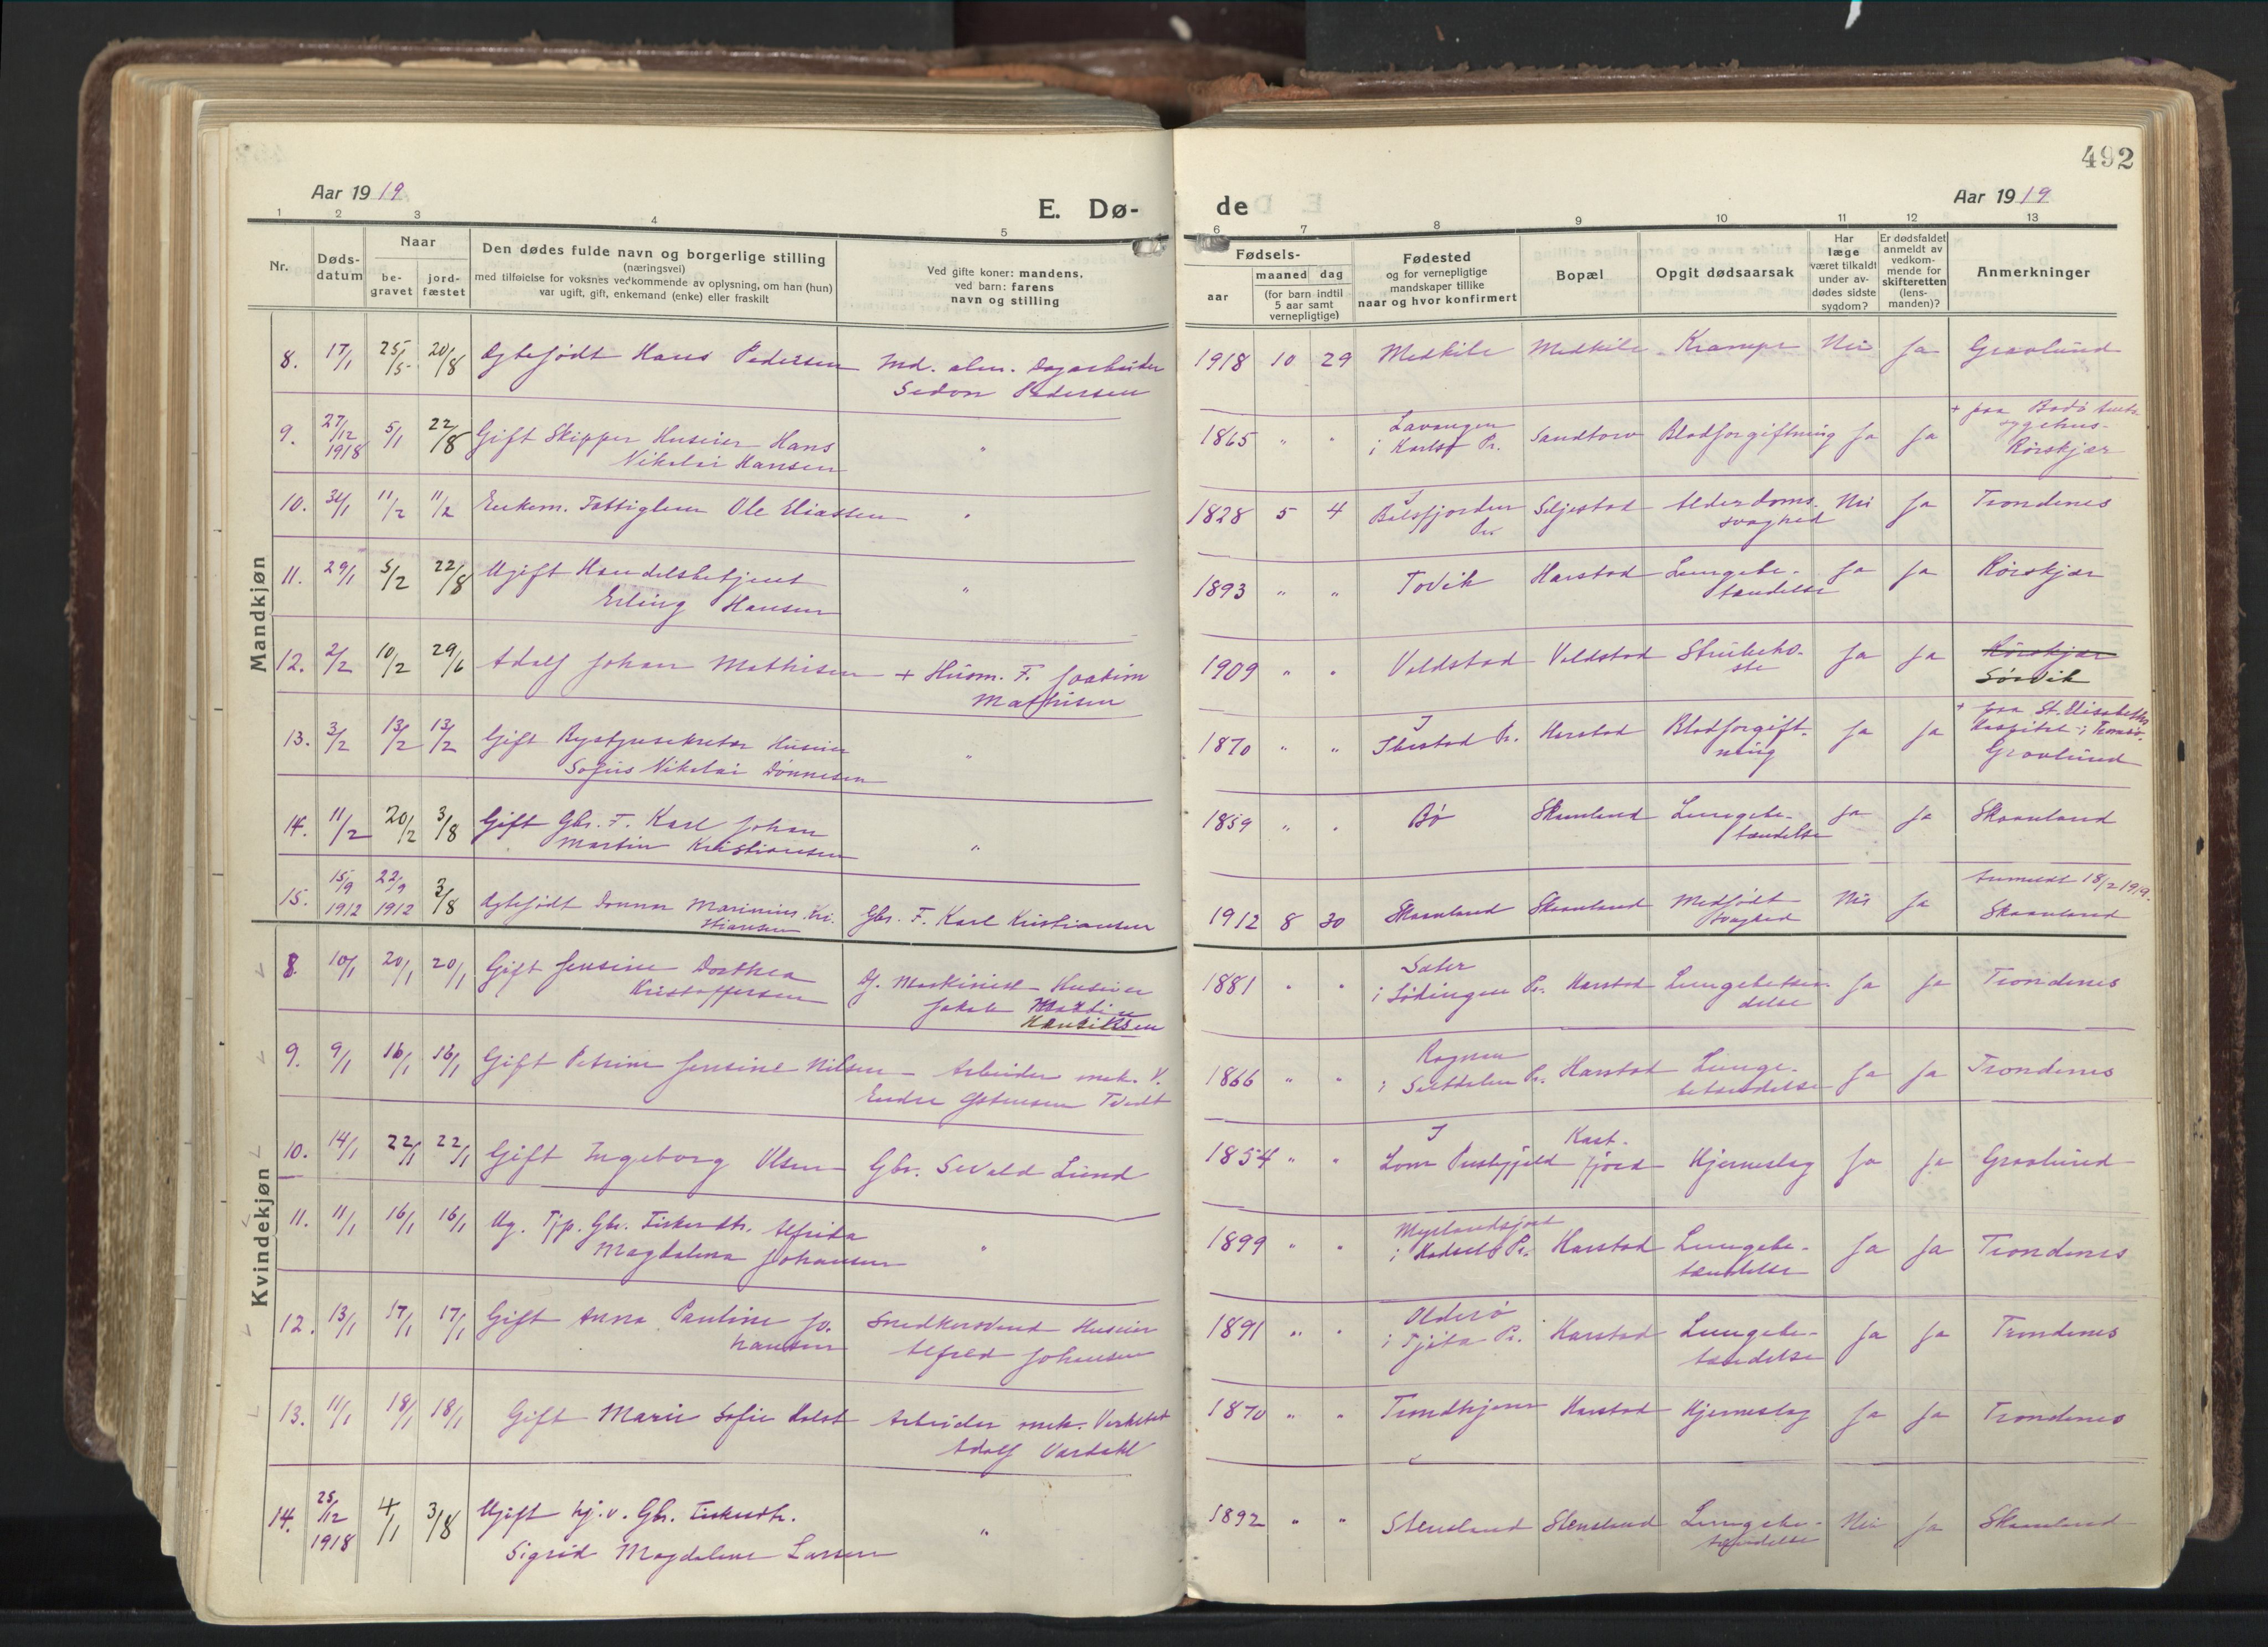 492
Aar 1919
E. Dø-
de
Aar 1919
1 2 3 4 5 6 7 8 9 10 11 12 13
Nr.
Døds-
datum
Naar
be-
gravet
jord-
fæstet
Den dødes fulde navn og borgerlige stilling
(næringsvei)
med tilføielse for voksnes vedkommende av oplysning, om han (hun)
var ugift, gift, enkemand (enke) eller fraskilt
Ved gifte koner: mandens,
ved barn: farens
navn og stilling
Fødsels-
aar
maaned dag
(for barn indtil
5 aar samt
vernepligtige)
Fødested
og for vernepligtige
mandskaper tillike
naar og hvor konfirmert
Bopæl
Opgit dødsaarsak
Har
læge
været tilkaldt
under av-
dødes sidste
sygdom?
Er dødsfaldet
anmeldt av
vedkom-
mende for
skifteretten
(lens-
manden)?
Anmerkninger
Mandkjøn
8. 17/1 25/5 20/8 Egtefødt Hans Pedersen Md. alm. Dagarbeider
Sedon Pedersen
1918 10 29 Medkile Medkile Krampe Nei Ja Gravlund
9. 27/12 1918 5/1 22/8 Gift Skipper Huseier Hans
Nikolai Hansen "
1865 " " Lavangen
i Karlsø Pr. Sandtorv Blodforgiftning Ja Ja + paa Bodø
sygehus.
Rørskjær
10. 31/1 11/2 11/2 Enkem. Fattiglem Ole Eliassen "
1828 5 4 I
Balsfjorden
Pr. Seljestad Alderdoms
svaghed Nei Ja Trondenes
11. 29/1 5/2 22/8 Ugift Handelsbetjent
Erling Hansen "
1893 " " Tovik Harstad Lungebe-
tændelse Ja Ja Rørskjær
12. 2/2 10/2 29/6 Adolf Johan Mathisen + Husm. F. Joakim
Mathisen
1909 " " Voldstad Voldstad Strubeho-
ste Ja Ja Rørskjær
Sørvik
13. 3/2 13/2 13/2 Gift Huseier
Sofus Nikolai Dønnesen "
1870 " " I
Ibestad Pr. Harstad Blodforgift-
ning Ja Ja + paa St. Elisabeths
Hospital i Tromsø.
Gravlund
14. 11/2 20/2 3/8 Gift Gbr. F. Karl Johan
Martin Kristiansen "
1859 " " Bø Skaanland Lungebe-
tændelse Ja Ja Skaanland
15. 15/9 1912 22/9 1912 3/8 Egtefødt Marinius Kri-
stiansen Gbr. F. Karl Kristiansen
1912 8 30 Skaanland Skaanland Medfødt
svaghed Nei Ja Anmeldt 18/2 1919.
Skaanland
Kvindekjøn
8. 10/1 20/1 20/1 Gift Jensine Dorthea
Kristoffersen Maskinist Huseier
Jakob Martin
Henriksen
1881 " " Sæter
i Lødingen Pr. Harstad Lungebetæn-
delse Ja Ja Trondenes
9. 9/1 16/1 16/1 Gift Petrine Jensine Nilsen Arbeider mek. V.
Endre Tvedt
1866 " " Rognan
i Saltdalen Pr. Harstad Lunge-
betændelse Ja Ja Trondenes
10. 14/1 22/1 22/1 Gift Ingeborg Olsen Gbr. Sevald Lund
1854 " " I
Lom Prestegjeld Kast-
fjord Hjerneslag Ja Ja Gravlund
11. 11/1 16/1 16/1 Ug. Tjp. Gbr. Fiskerdtr. Alfrida
Magdalena Johansen "
1899 " " Myrlandsfjord
i Hadsels Pr. Harstad Lungebe-
tændelse Ja Ja Trondenes
12. 13/1 17/1 17/1 Gift Anna Pauline Jo-
hansen Snedkersvend Huseier
Alfred Johansen
1891 " " Olderø
i Tjøtta Pr. Harstad Lungebe-
tændelse Ja Ja Trondenes
13. 11/1 18/1 18/1 Gift Marie Sofie Holst Arbeider mek. Verksted
Adolf Vardahl
1870 " " Trondhjem Harstad Hjerneslag Ja Ja Trondenes
14. 25/12 1918 4/1 3/8 Ugift hj. v. Gbr. Fiskerdtr.
Sigrid Magdalene Larsen "
1892 " " Stensland Stensland Lungebe-
tændelse Nei Ja Skaanland